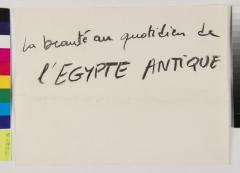 la beauté au quotidien de
l'EGYPTE ANTIQUE